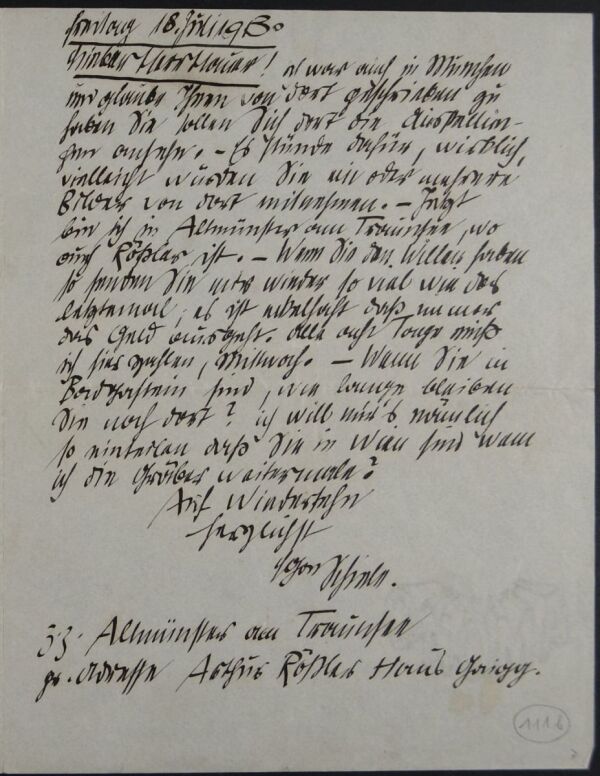 Freitag 18. Juli 1913.
Lieber Herr Hauer! ich war auch in München
und glaube Ihnen von dort geschrieben zu
haben Sie sollen Sich dort die Ausstellun-
gen ansehn. – Es stünde dafür, wirklich,
vielleicht würden Sie ein oder mehrere
Bilder von dort mitnehmen. – Jetzt
bin ich in Altmünster am Traunsee, wo
auch Rößler ist. – Wenn Sie den Willen haben
so senden Sie mir wieder so viel wie das
letztemal, es ist ekelhaft daß immer
das Geld ausgeht. Alle acht Tage muß
ich hier zahlen, Mittwoch. – Wann Sie in
Badgastein sind, wie lange bleiben
Sie noch dort? ich will mir's nämlich
so einteilen daß Sie in Wien sind wann
ich die Gräber weitermale?
Auf Wiedersehn
herzlichst
Egon Schiele.
z. Z. Altmünster am Traunsee
pr. Adresse Arthur Rößler Haus Gaigg.
1116